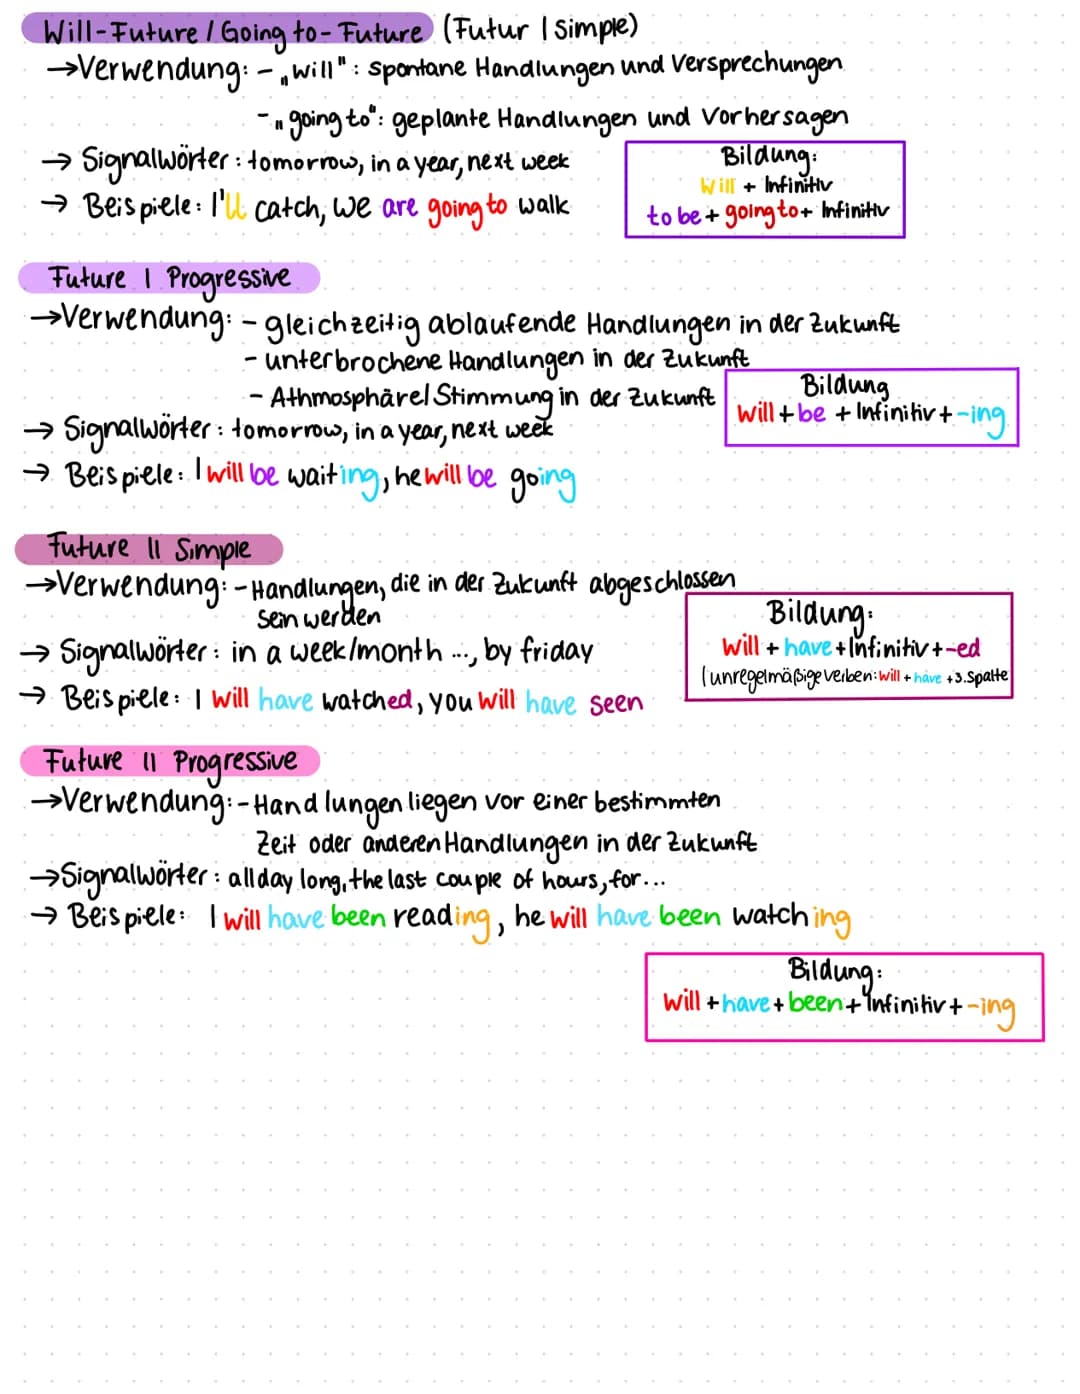 Will-Future / Going to-Future (Futur I Simple)
→Verwendung: - „will": spontane Handlungen und Versprechungen
- „going to": geplante Handlungen und Vorhersagen
→ Signalwörter: tomorrow, in a year, next week
→ Beispiele: I'll catch, we are going to walk
Bildung:
will + Infinitiv
to be + going to + Infinitiv
Future I Progressive
→Verwendung: - gleichzeitig ablaufende Handlungen in der Zukunft
- unterbrochene Handlungen in der Zukunft
- Athmosphäre/Stimmung in der Zukunft
→ Signalwörter: tomorrow, in a year, next week
→ Beispiele: I will be waiting, he will be going
Bildung
will + be + Infinitiv + -ing
Future II Simple
→Verwendung: - Handlungen, die in der Zukunft abgeschlossen
sein werden
→ Signalwörter: in a week/month ..., by friday
→ Beispiele: I will have watched, you will have seen
Bildung:
will + have + Infinitiv + -ed
(unregelmäßige Verben: will + have + 3. Spalte
Future II Progressive
→Verwendung: - Handlungen liegen vor einer bestimmten
Zeit oder anderen Handlungen in der Zukunft
→Signalwörter: all day long, the last couple of hours, for...
→ Beispiele: I will have been reading, he will have been watching
Bildung:
will + have + been + Infinitiv + -ing